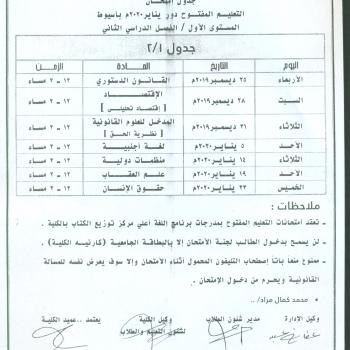 جدول امتحان
التعليم المفتوح دور يناير ٢٠٢٠م بأسيوط
المستوى الأول / الفصل الدراسي الثاني
جدول ٢/١
اليوم التاريخ المادة الزمن
الأربعاء ٢٥ ديسمبر ٢٠١٩م القانون الدستوري ١٢ - ٢ مساء
السبت ٢٨ ديسمبر ٢٠١٩م الإقتصاد [ إقتصاد تحليلي ] ١٢ - ٢ مساء
الثلاثاء ٣١ ديسمبر ٢٠١٩م المدخل للعلوم القانونية [ نظرية الحق ] ١٢ - ٢ مساء
الأحد ٥ يناير ٢٠٢٠م لغة أجنبية ١٢ - ٢ مساء
الثلاثاء ١٤ يناير ٢٠٢٠م منظمات دولية ١٢ - ٢ مساء
الأحد ١٩ يناير ٢٠٢٠م علم العقاب ١٢ - ٢ مساء
الخميس ٢٣ يناير ٢٠٢٠م حقوق الإنسان ١٢ - ٢ مساء
ملاحظات :
- تعقد امتحانات التعليم المفتوح بمدرجات برنامج اللغة أعلي مركز توزيع الكتاب بالكلية .
- لن يسمح بدخول الطالب لجنة الأمتحان إلا بالبطاقة الجامعية ( كارنيه الكلية ) .
- ممنوع منعاً باتاً إصطحاب التليفون المحمول أثناء الأمتحان وإلا سوف يعرض نفسه للمسألة
القانونية ويحرم من دخول الإمتحان .
محمد كمال مراد/..
وكيل الإدارة مدير شئون الطلاب وكيل الكلية يعتمد .. عميد الكلية
لشئون التعليم والطلاب